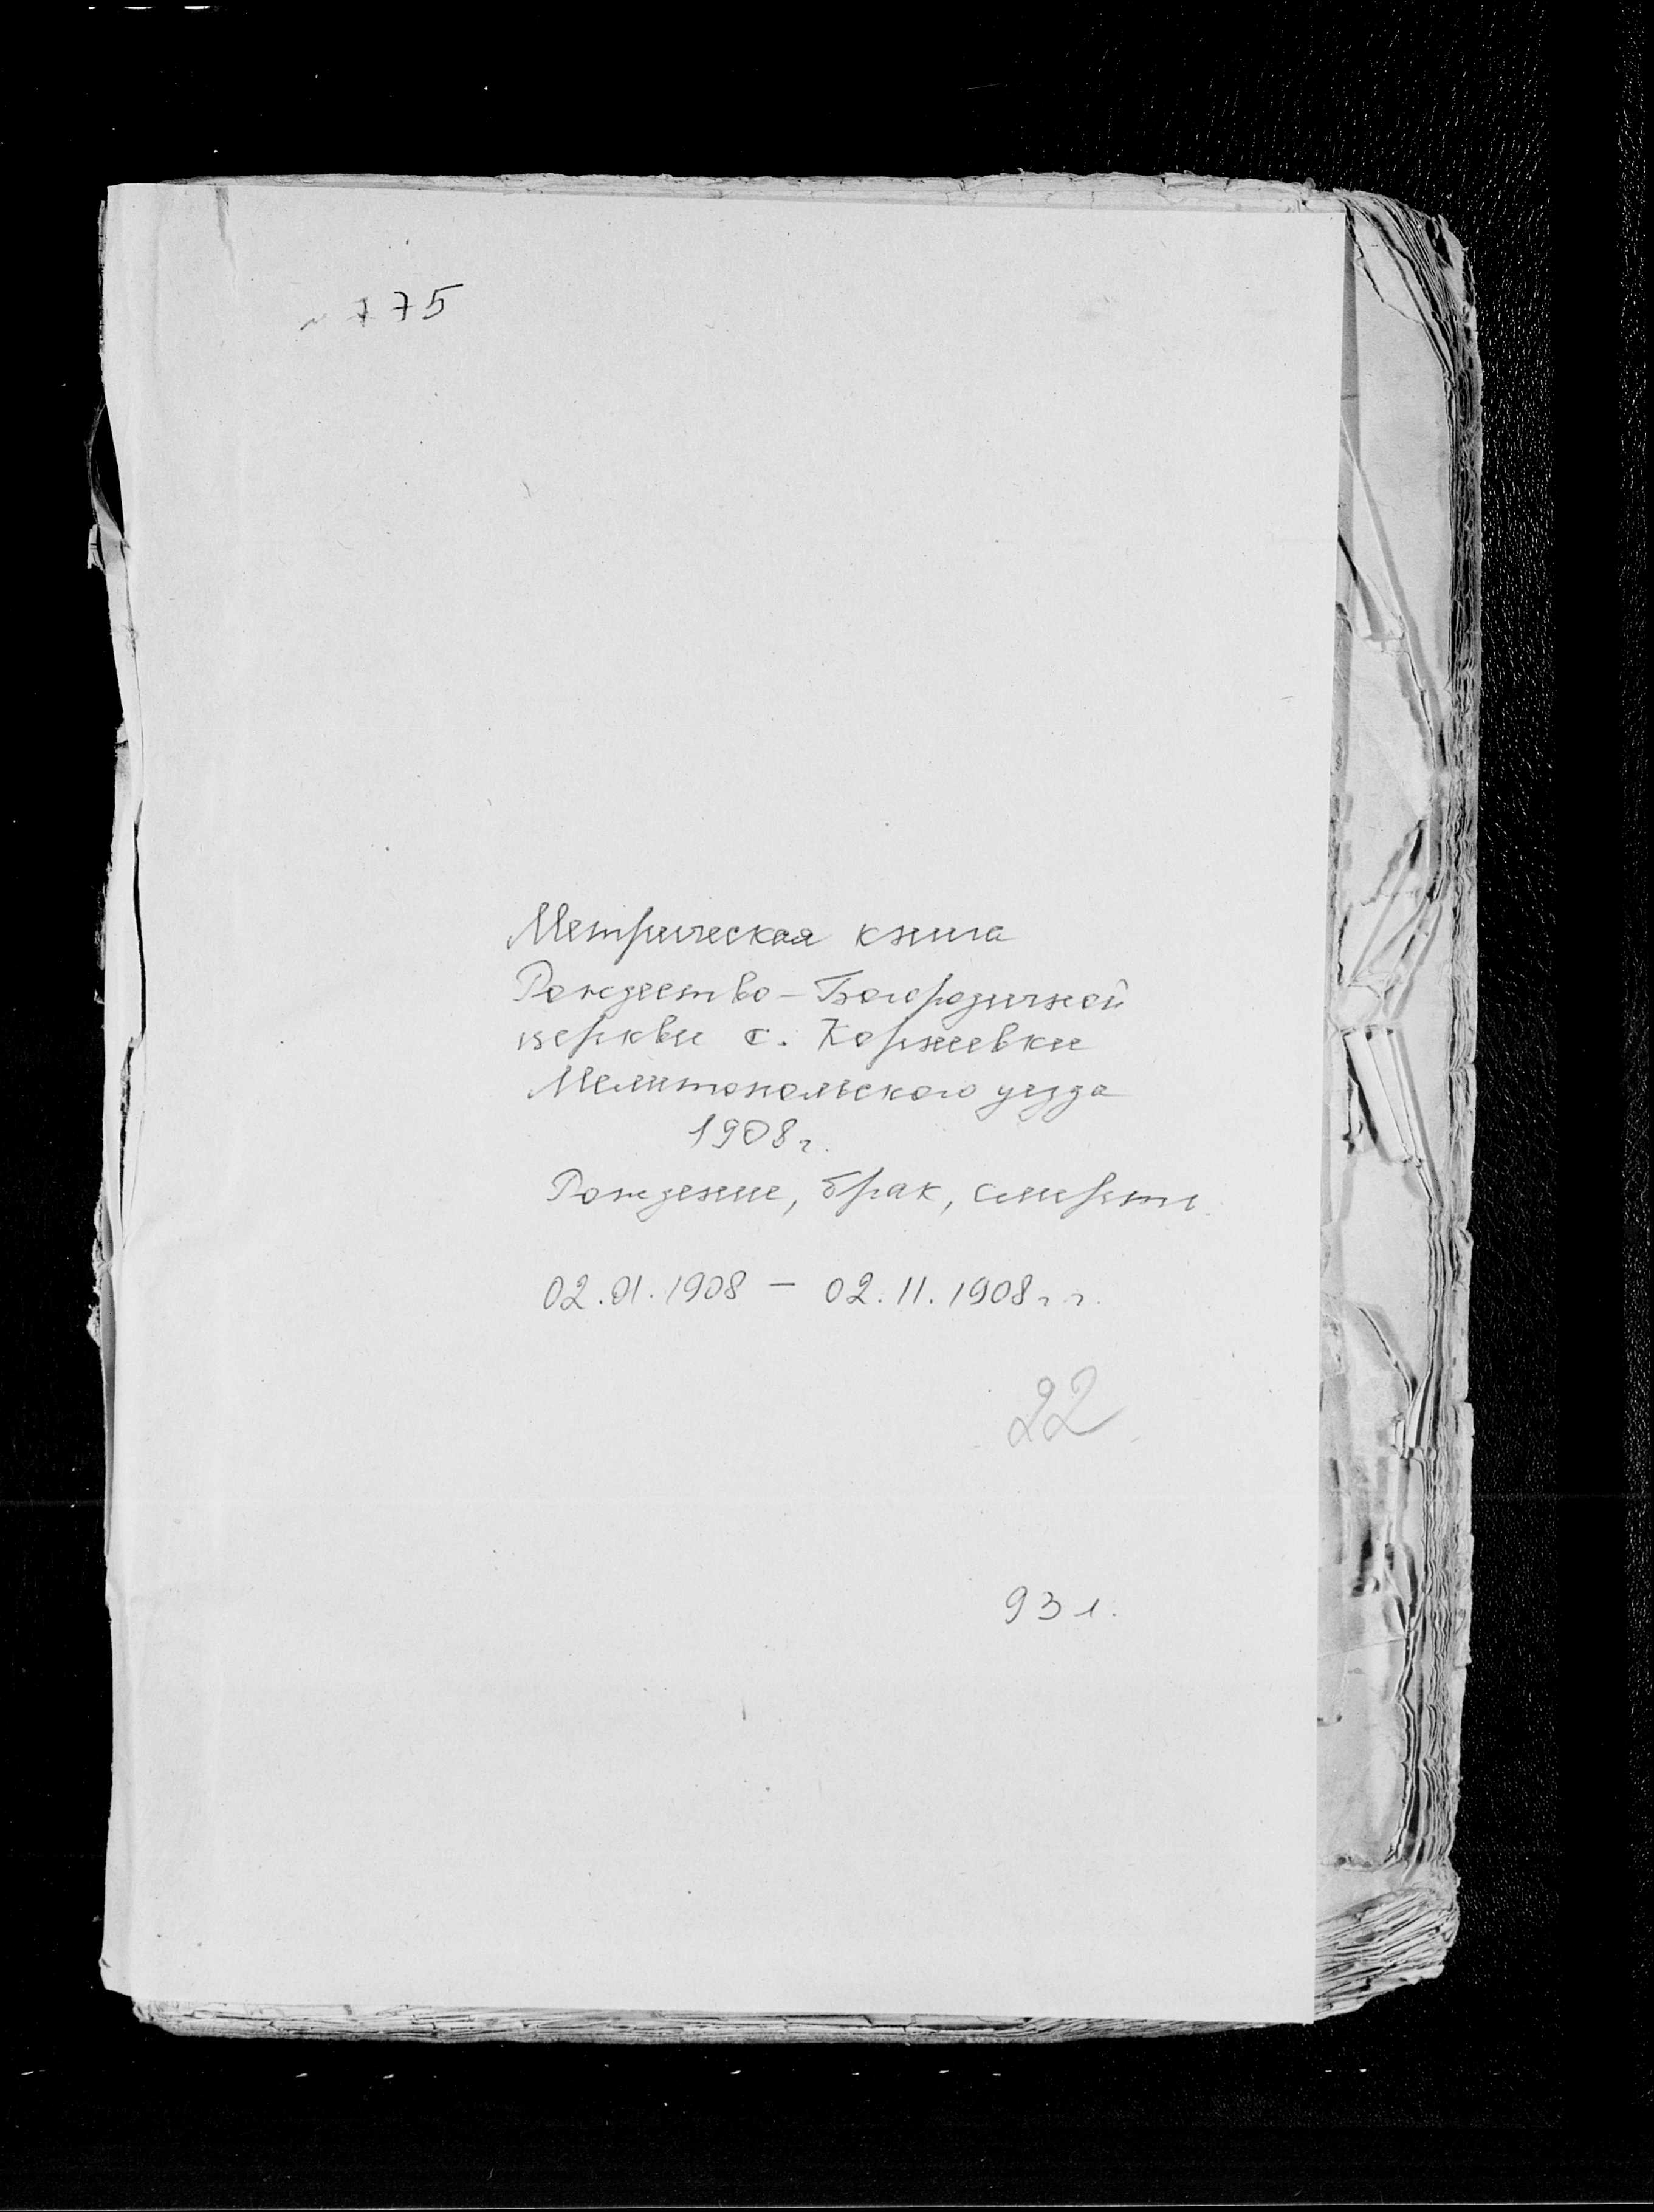 775
Метрическая книга
Рождество-Богородичной
церкви с. Корнеевки
Мелитопольского уезда
1908 г.
Рождение, брак, смерть
02.01.1908 - 02.11.1908 г.г.
22
93 л.